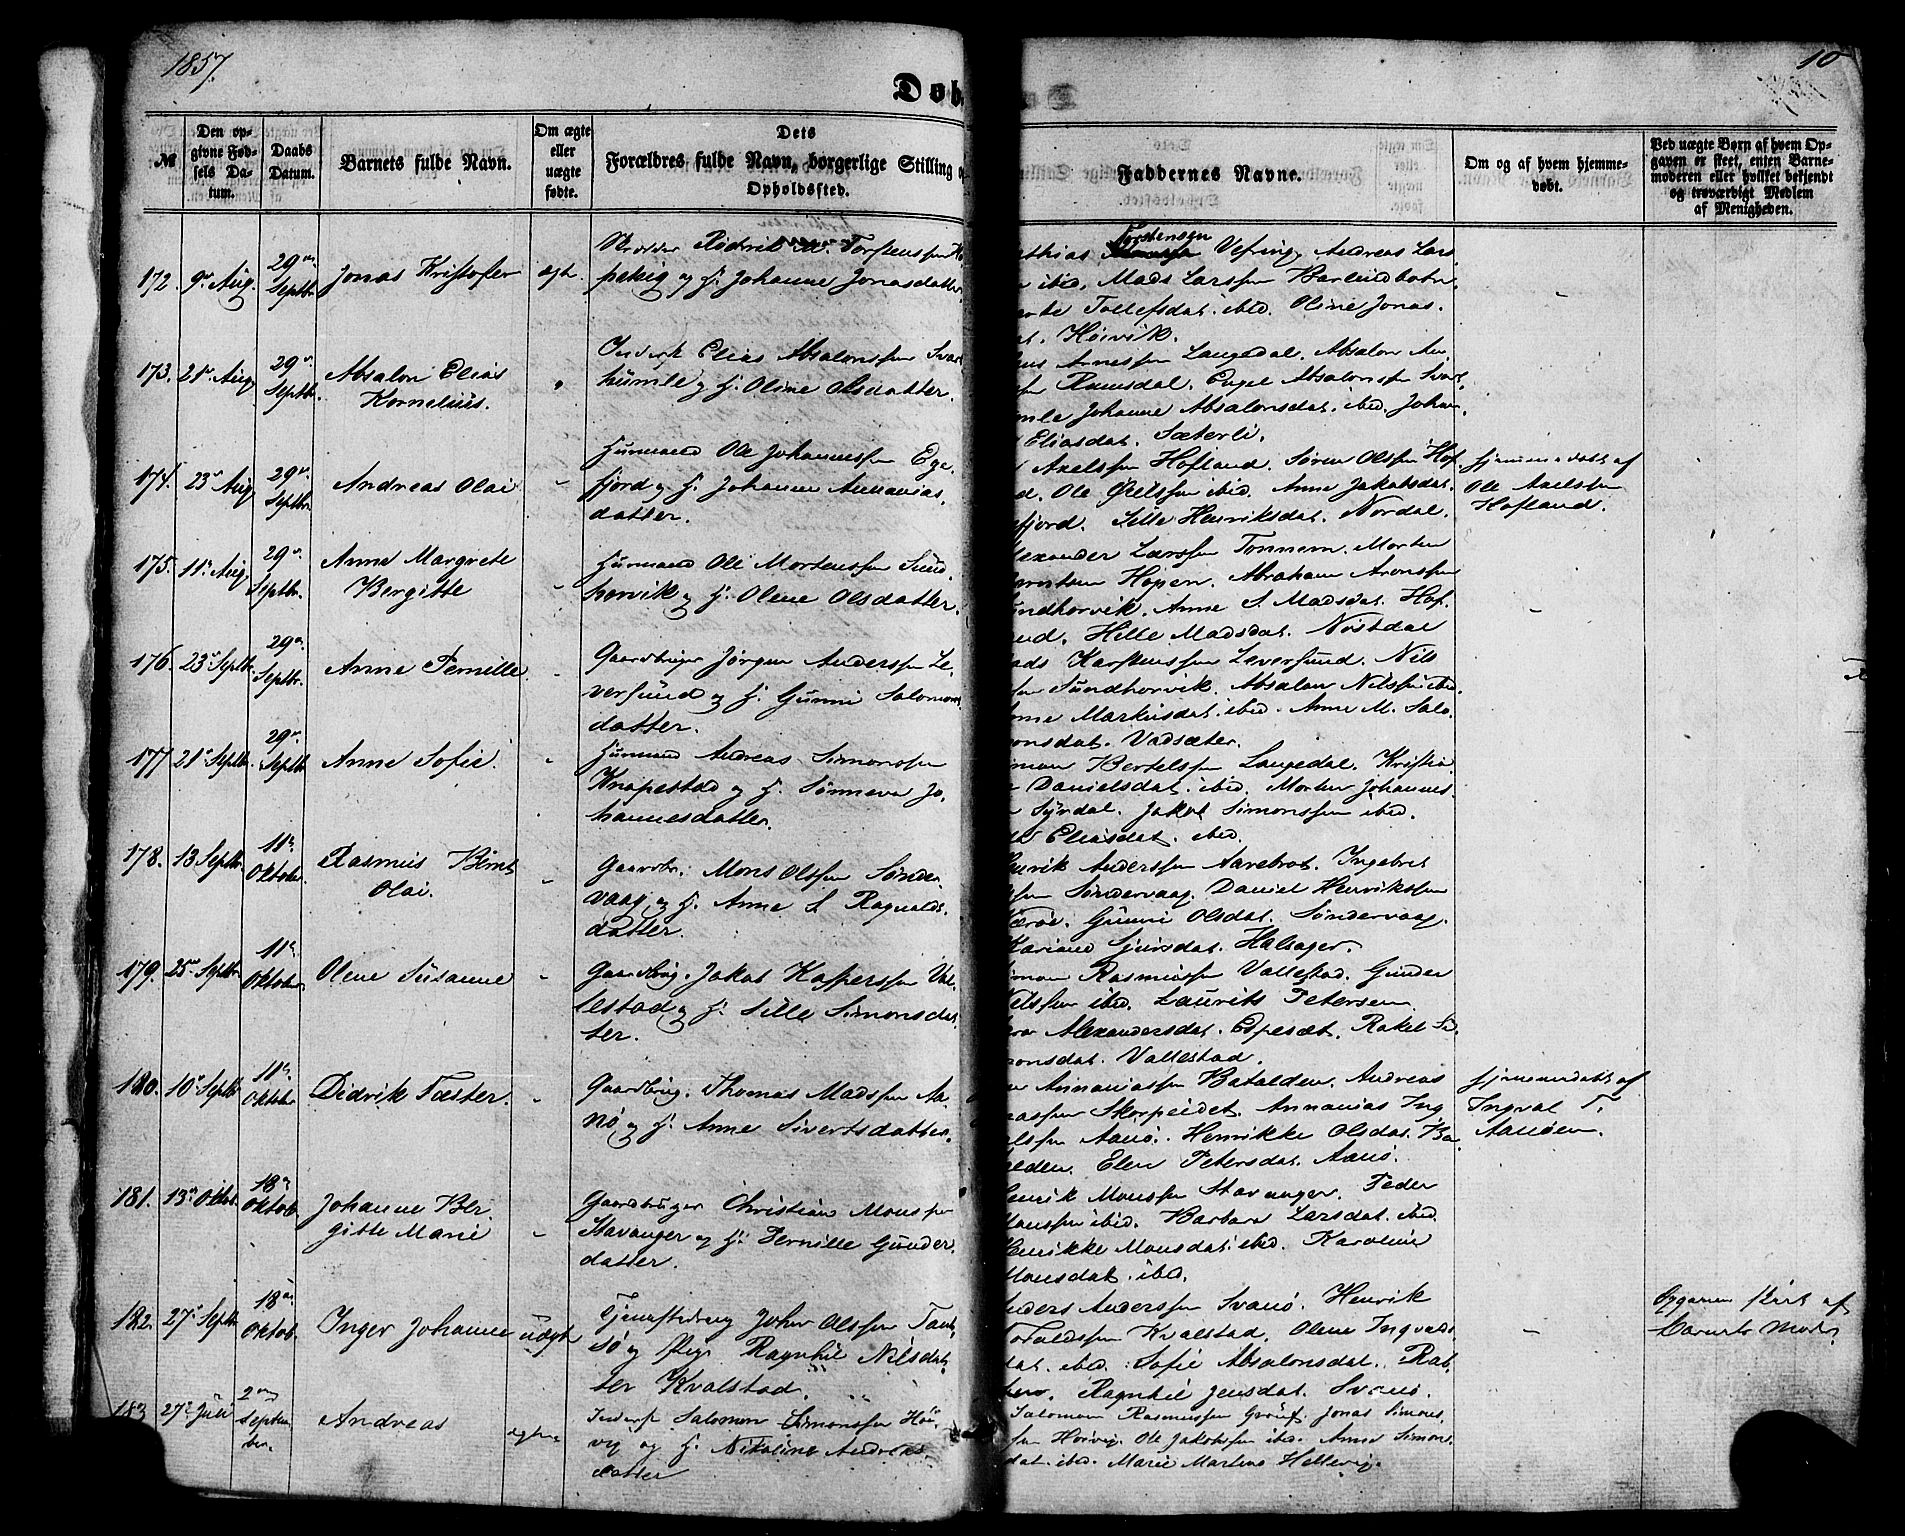 1857.
Døb
10
№
Den op-
givne Fød-
sels Da-
tum.
Daabs
Datum.
Barnets fulde Navn.
Om ægte
eller
uægte
fødte.
Dets
Forældres fulde Navn, borgerlige Stilling o
Opholdssted.
Faddernes Navne.
Om og af hvem hjemme-
døbt.
Ved uægte Børn af hvem Op-
gaven er skeet, enten Barne-
moderen eller hvilket bekjendt
og troværdigt Medlem
af Menigheden.
172. 9de Aug. 29de Septbr. Jonas Kristofer ægt.
Didrik M. Torstenssen
og H. Johanne Jonasdatter
Torstensen
Vefring, Andreas Lars
ibid. Mads Larssen Barlindbotn
Tollefsdat. ibid. Oline Jonas.
Høivik.
173. 21de Aug. 29de Septbr. Absalon Elias
Kornelius.
Inderst Elias Absalonssen Svart
humle og H. Oline Olsdatter.
Arnessen Langedal. Absalon An.
Ramsdal. Engel Absalonssen Svart
mle Johanne Absalonsdat. ibid. Johan.
Eliasdat. Sæterli.
174. 23de Aug. 29de Septbr. Andreas Olai
Husmand Ole Johannessen Ege.
fjord og H. Johanne Annanias.
datter.
Axelssen Hofland. Søren Olssen Hof.
d. Ole Axelssen ibid. Anne Jakobsdat.
fjord. Sille Henriksdat. Nordal.
hjemmedøbt af
Ole Axelssen
Hofland.
175. 11de Aug. 29de Septbr. Anne Margrete
Bergitte
Husmand Ole Mortenssen Sund
horvik og H. Olene Olsdatter.
lexander Larssen Tonnem. Morten
Hopen. Abraham Aronssen
undhorvik. Anne S. Madsdat. Hof.
und. Hille Madsdat. Nøstdal
176. 23de Septbr. 29de Septbr. Anne Pernille.
Gaardbruger Jørgen Anderssen Le.
versund og H. Gunni Salomons
datter.
ads Karstenssen Leversund. Nils
Sundhorvik. Absalon Nilssen ibid.
Markusdat. ibid. Anne M. Salo.
onsdat. Vadsæter.
177. 21de Septbr. 29de Septbr. Anne Sofie.
Husmand Andreas Simonssen
Knapestad og H. Sønneva Jo.
hannesdatter.
mon Bertelssen Langedal. Kristia
Danielsdat. ibid. Morten Johannes.
Syrdal. Jakob Simonssen ibid.
Eliasdat. ibid.
178. 13 Septbr. 11te Oktober Rasmus Bernt
Olai.
Gaardbr. Mons Olssen Sønder
vaag og H. Anne S. Ragnalds.
datter.
enrik Anderssen Aarebrot. Ingebret
ssen Søndervaag. Daniel Henrikssen
Værøe. Gunni Olsdat. Søndervaag.
Kariane Sjursdat. Halsager.
179. 25de Septbr. 11te Oktober Olene Susanne
Gaardbrug. Jakob Kasperssen Val
lestad og H. Sille Simonsdat.
ter.
imon Rasmussen Vallestad. Gunder
Nilssen ibid. Laurits Petersen
Alexandersdat. Espesæt. Rakel Si.
monsdat. Vallestad.
180. 10de Septbr. 11te Oktober Didrik Tæster.
Gaardbrug. Thomas Madssen Aa.
nø og H. Anne Sivertsdatter.
Annaniassen Batalden. Andreas
aassen Skorpeidet. Annanias Ing
Aanø. Henrikke Olsdat. Ba.
alden. Elen Petersdat. Aanø.
hjemmedøbt af
Ingval T.
Aanøen.
181. 13de Oktob. 18de Oktob. Johanne Ber
gitte Marie
Gaardbruger Christian Monssen
Stavanger og H. Pernille Gunder.
datter.
enrik Monssen Stavanger. Peder
Monssen ibid. Barbara Larsdat. ibid.
Henrikke Monsdat. ibid. Karoline
Monsdat. ibid.
182. 27de Septbr. 18de Oktob. Inger Johanne uægt
Tjenestedreng Johan Olssen Tan
sø og Pige Ragnhil Nilsdat
ter Kvalstad.
nders Anderssen Svanø. Henrik
Kvalstad. Olene Ingvals
dat. ibid. Sofie Absalonsdat.
Ragnhil Jensdat. Svanø.
Opgaven skeet af
Barnets Moder
183. 27de Juli 2den Septem
ber. Andreas ægte
Inderst Salomon Simonssen Høi
vig og H. Nikoline Andreas
datter
Salomon Rasmussen Grøuf. Jonas Simons
sen Høivig. Ole Jakobssen ibid. Anne Simons
dat. ibid. Marie Martens Hellevig.